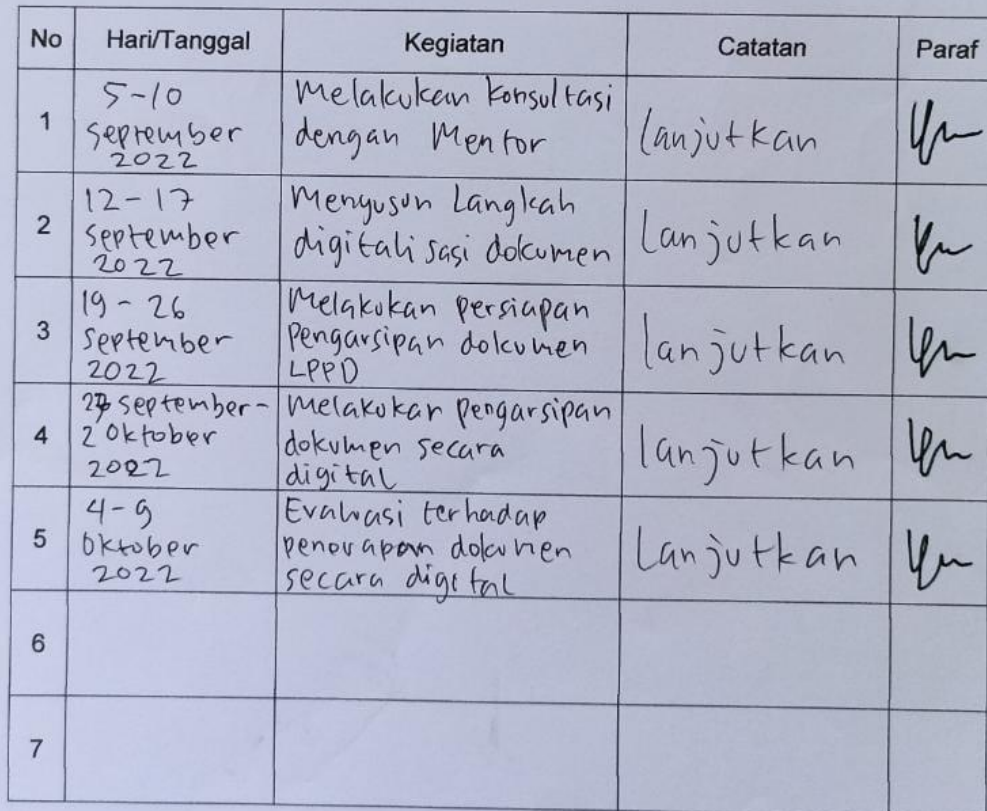 No Hari/Tanggal Kegiatan Catatan Paraf
1
5-10
September
2022
Melakukan konsultasi
dengan Mentor
lanjutkan
2
12-17
September
2022
Menyusun Langkah
digitalisasi dokumen
Lanjutkan
3
19-26
September
2022
Melakukan persiapan
Pengarsipan dokumen
LPPD
lanjutkan
4
September-
2 Oktober
2022
Melakukan pengarsipan
dokumen secara
digital
lanjutkan
5
4-9
Oktober
2022
Evaluasi terhadap
dokumen
secara digital
Lanjutkan
6
7